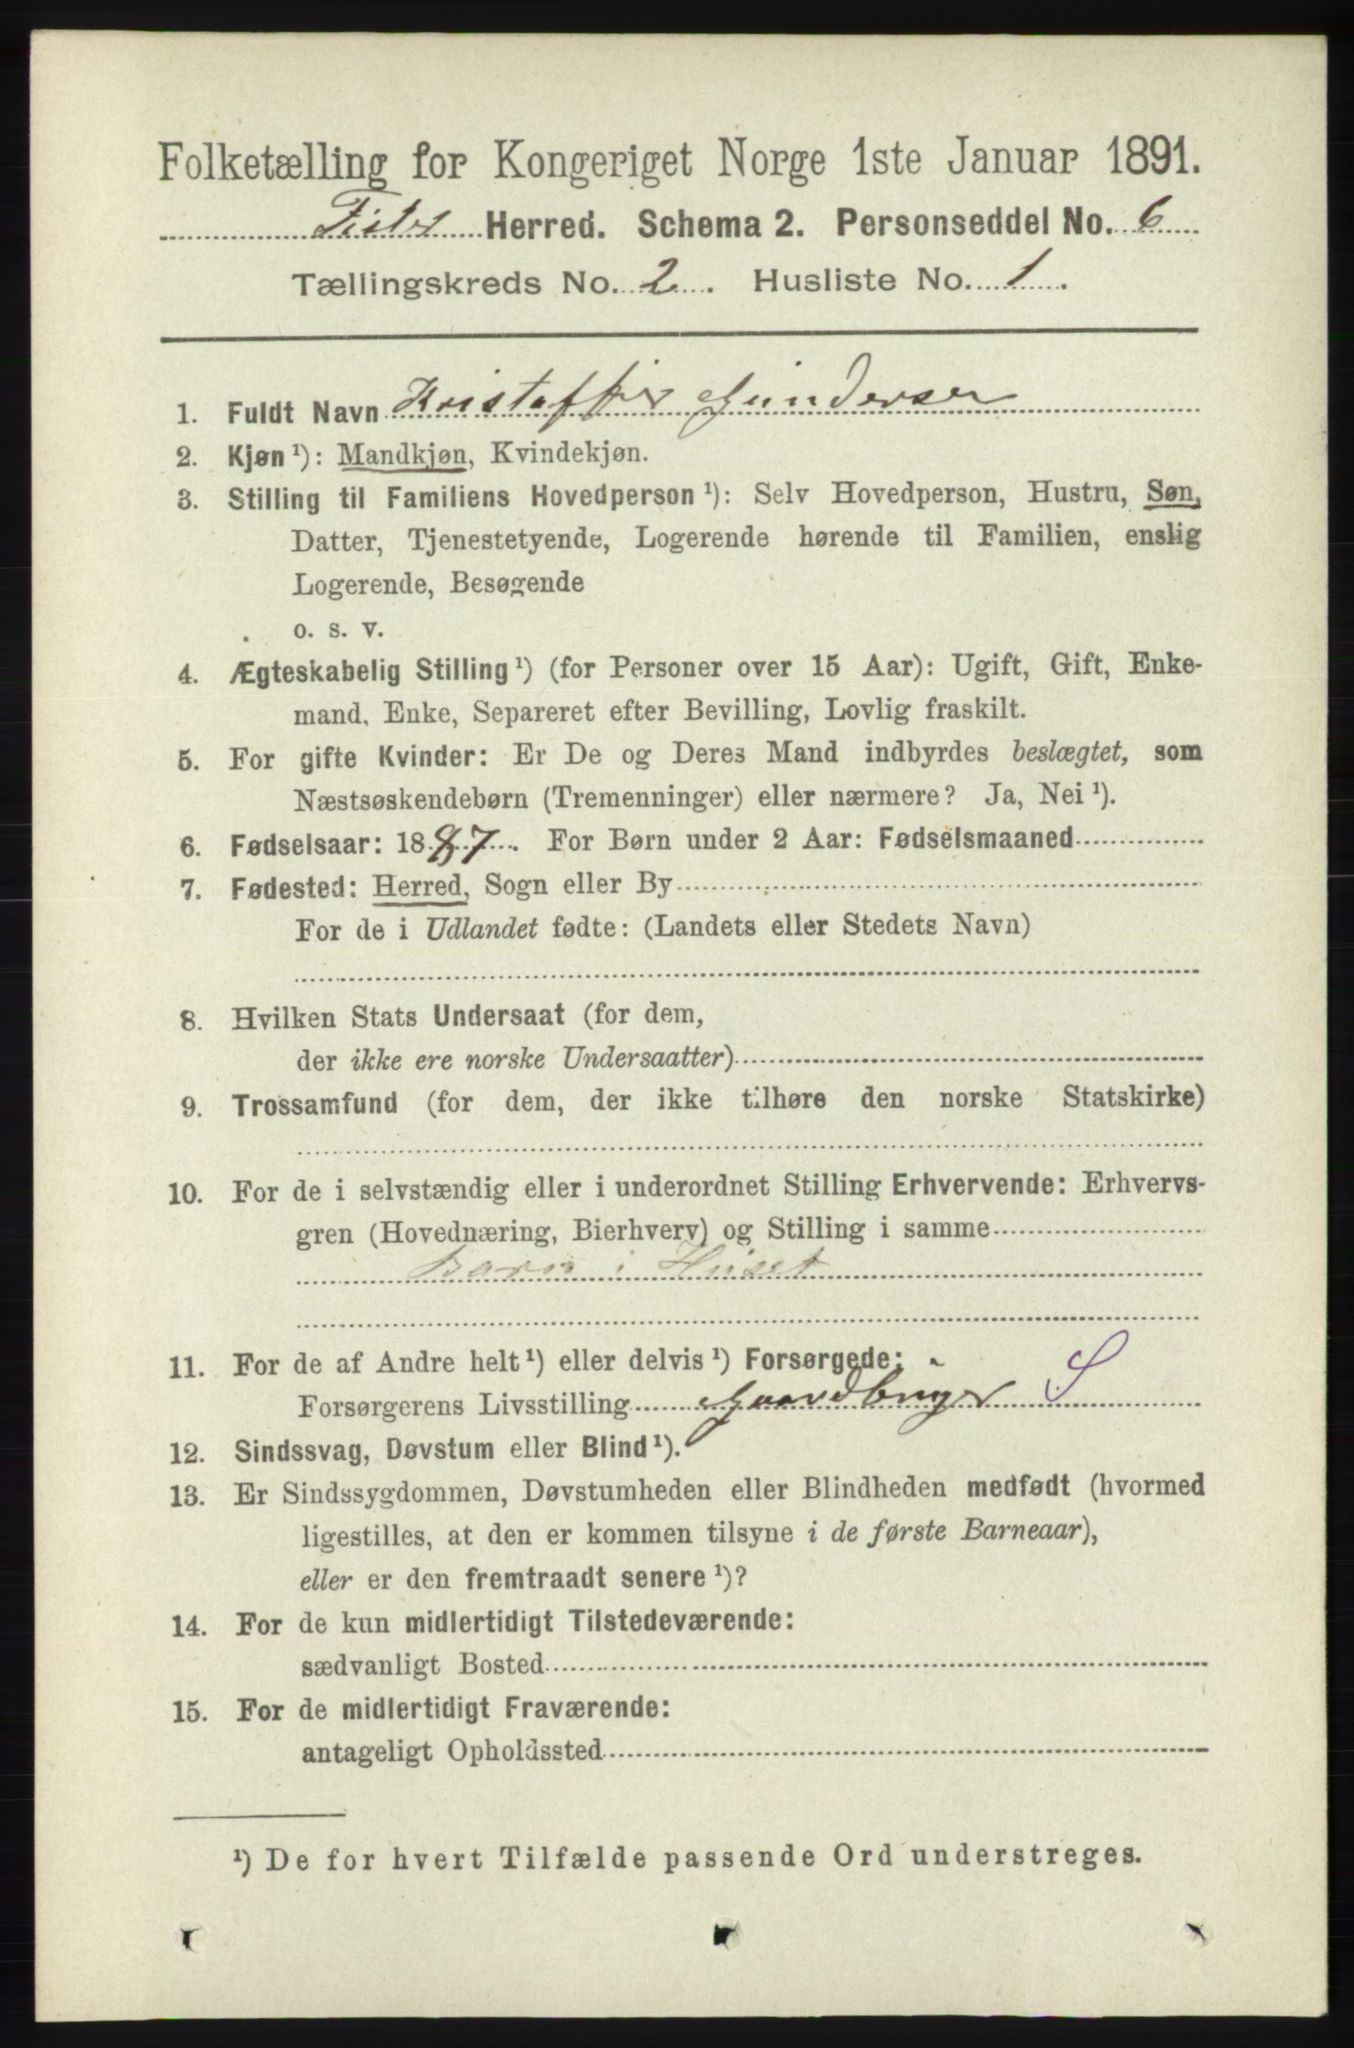 Folketælling for Kongeriget Norge 1ste Januar 1891.
Fister Herred. Schema 2. Personseddel No. 6
Tællingskreds No. 2. Husliste No. 1.
1. Fuldt Navn Kristoffer Gundersen
2. Kjøn ¹): Mandkjøn, Kvindekjøn.
3. Stilling til Familiens Hovedperson ¹): Selv Hovedperson, Hustru, Søn,
Datter, Tjenestetyende, Logerende hørende til Familien, enslig
Logerende, Besøgende
o. s. v.
4. Ægteskabelig Stilling ¹) (for Personer over 15 Aar): Ugift, Gift, Enke-
mand, Enke, Separeret efter Bevilling, Lovlig fraskilt.
5. For gifte Kvinder: Er De og Deres Mand indbyrdes beslægtet, som
Næstsøskendebørn (Tremenninger) eller nærmere? Ja, Nei ¹).
6. Fødselsaar: 1887. For Børn under 2 Aar: Fødselsmaaned
7. Fødested: Herred, Sogn eller By
For de i Udlandet fødte: (Landets eller Stedets Navn)
8. Hvilken Stats Undersaat (for dem,
der ikke ere norske Undersaatter)
9. Trossamfund (for dem, der ikke tilhøre den norske Statskirke)
10. For de i selvstændig eller i underordnet Stilling Erhvervende: Erhvervs-
gren (Hovednæring, Bierhverv) og Stilling i samme
Barn i Huset
11. For de af Andre helt ¹) eller delvis ¹) Forsørgede:
Forsørgerens Livsstilling Gaardbruger S
12. Sindssvag, Døvstum eller Blind ¹).
13. Er Sindssygdommen, Døvstumheden eller Blindheden medfødt (hvormed
ligestilles, at den er kommen tilsyne i de første Barneaar),
eller er den fremtraadt senere ¹)?
14. For de kun midlertidigt Tilstedeværende:
sædvanligt Bosted
15. For de midlertidigt Fraværende:
antageligt Opholdssted
¹) De for hvert Tilfælde passende Ord understreges.